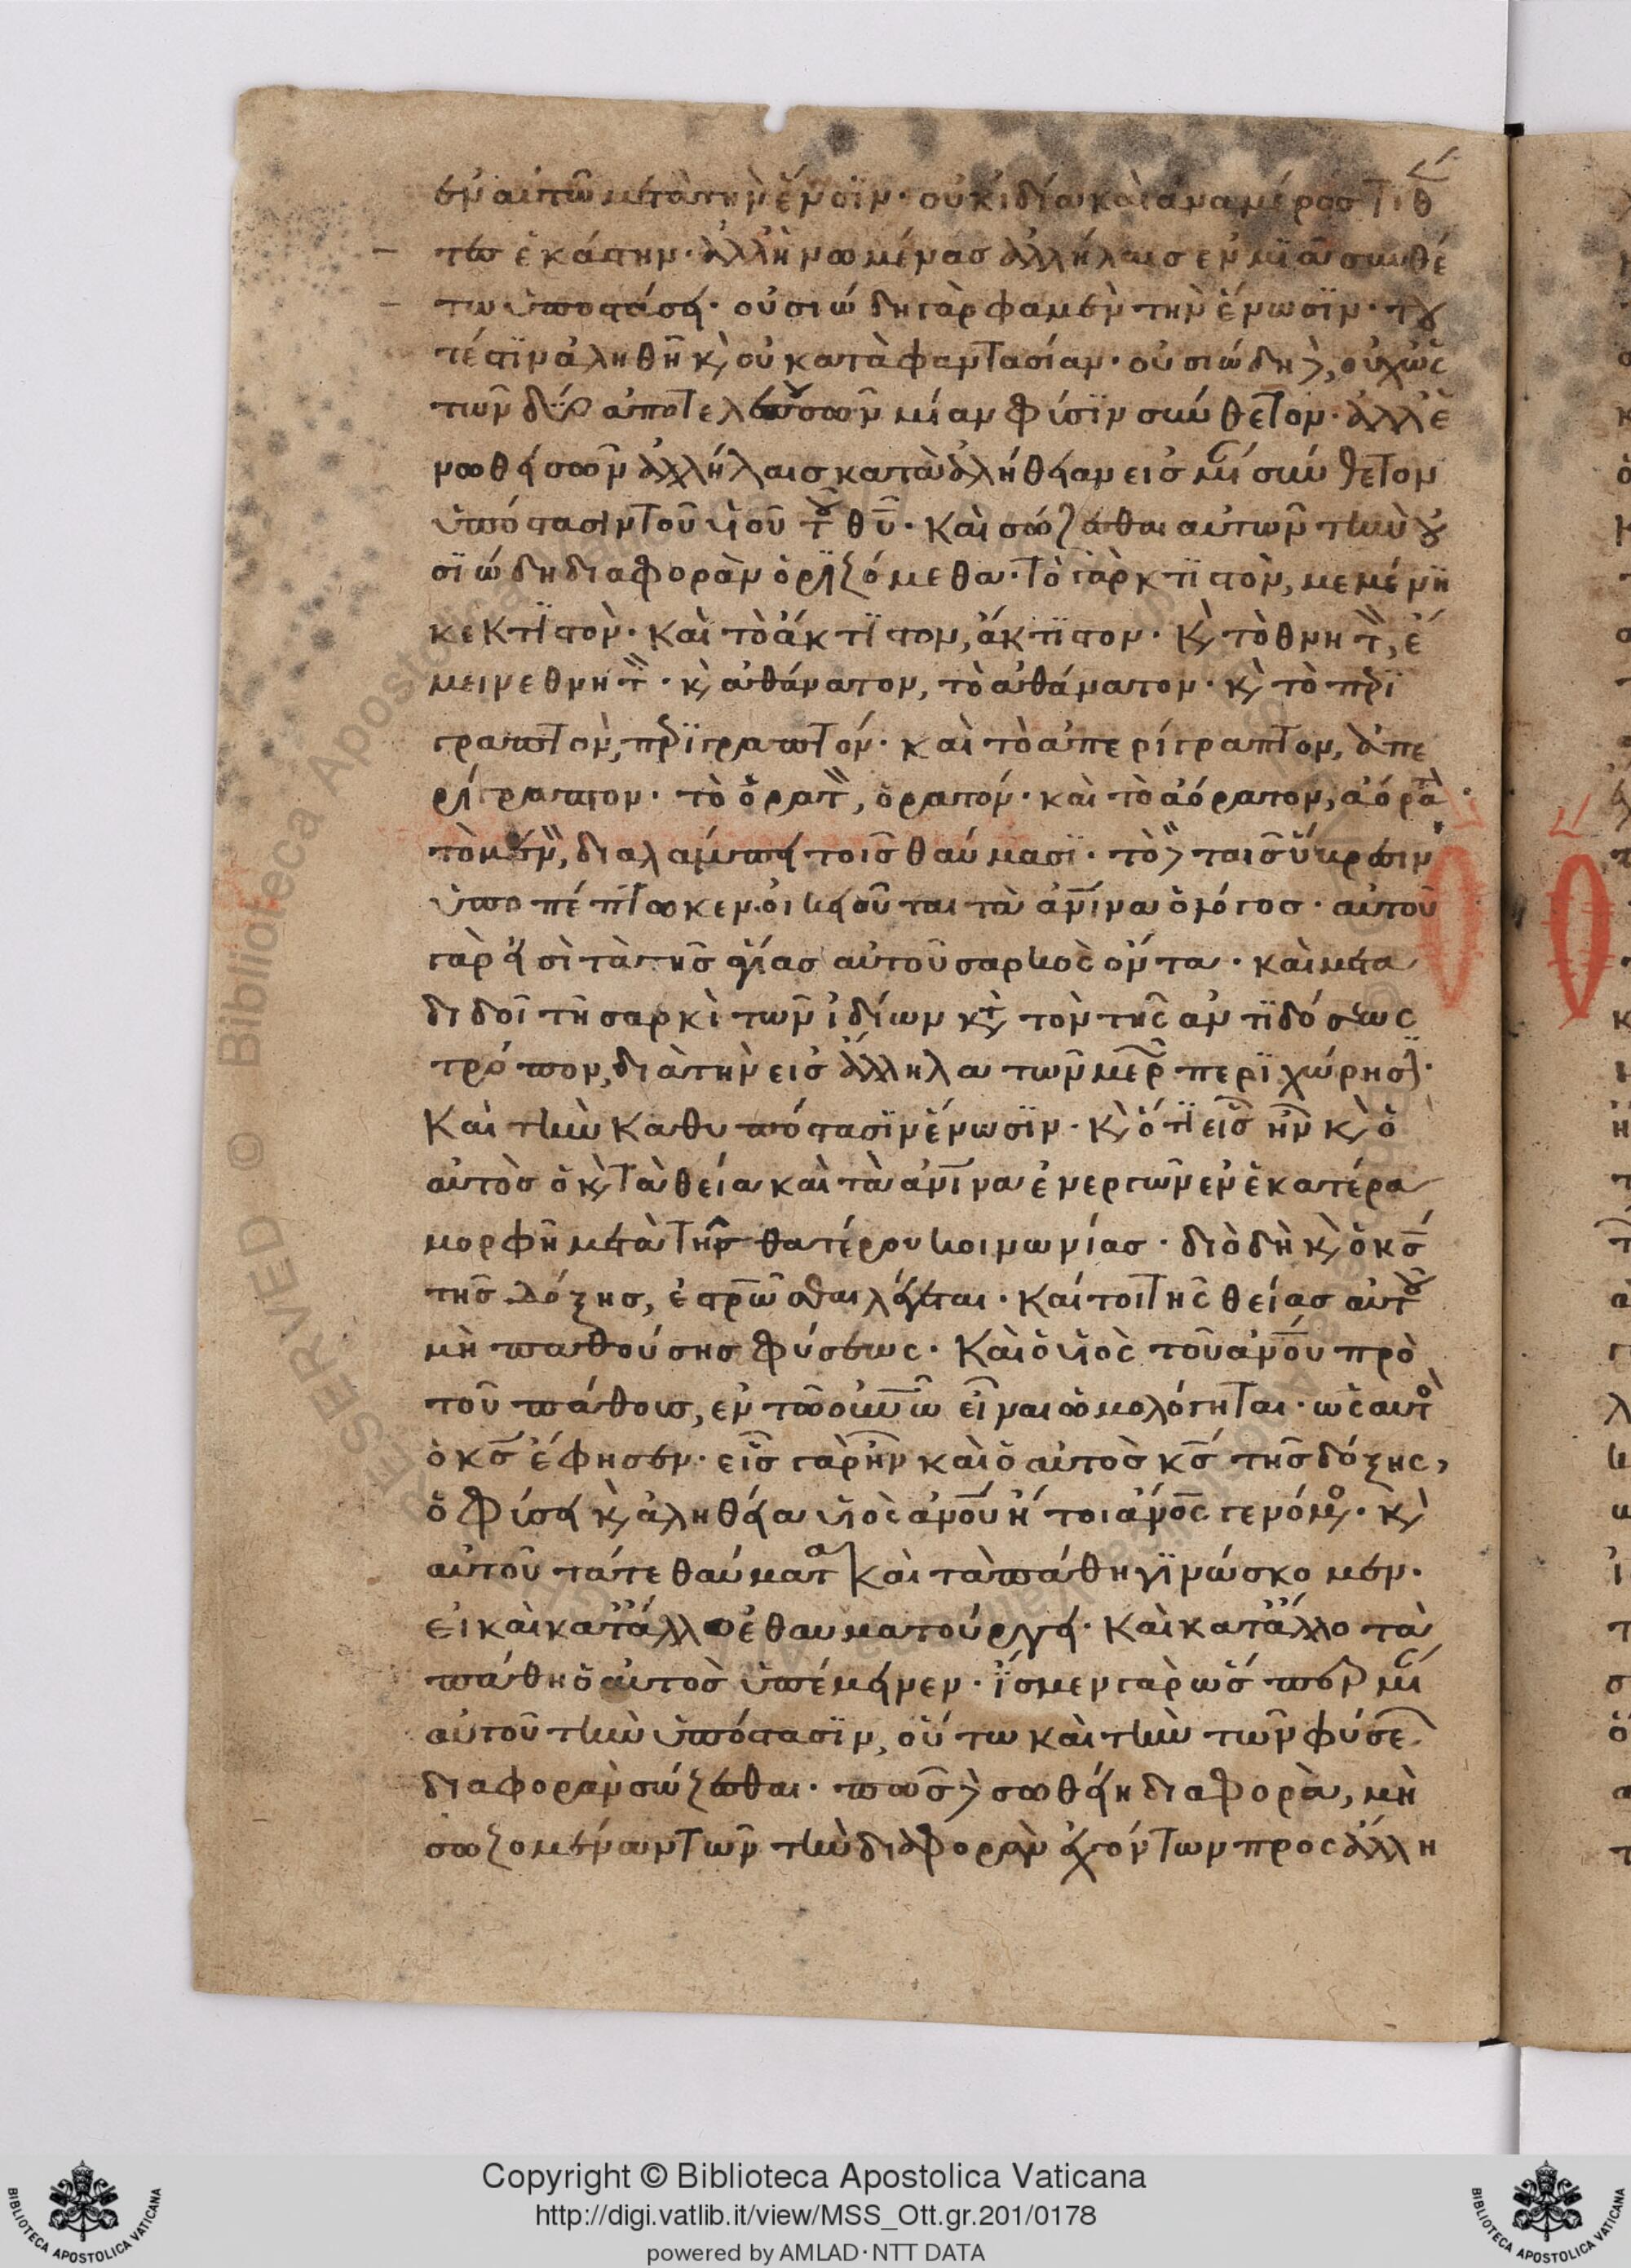 ἐν αὐτῶ μετὰ τὴν ἕνωσϊν· οὐκ ἰδία καὶ ἀναμέρος τιθ
τω ἑκάστην· ἀλλ' ἡνωμένας ἀλλήλαις ἐν μϊᾶ συνθέ
τω ὑποστάσει· οὐσιώδη γὰρ φαμὲν τὴν ἕνωσϊν· του
τέστϊν ἀληθῆ κ(αὶ) οὐ κατὰ φαντασίαν· οὐσιώδη δὲ, οὐχ ὡς
τῶν δύο ἀποτελουσῶν μίαν φύσϊν σύνθετον· ἀλλ' ἑ
νωθεισῶν ἀλλήλαις κατὰ ἀλήθειαν εἰς μί(αν) σύνθετον
ὑπόστασιν τοῦ υἱοῦ τοῦ θῦ· καὶ σώζεσθαι αὐτῶν τὴν οὐ
σϊώδη διαφορὰν ὁρϊζόμεθα· τὸ γὰρ κτϊστὸν, μεμένη
κε κτϊστὸν· καὶ τὸ ἄκτϊστον, ἄκτϊστον· κ(αὶ) τὸ θνητ(ὸν), ἔ
μεινε θνητ(όν)· κ(αὶ) ἀθάνατον, τὸ ἀθάνατον· κ(αὶ) τὸ περϊ
γραπτὸν, περϊγραπτόν· καὶ τὸ ἀπερίγραπτον, ἀπε
ρίγραπτον· τὸ ὁρατ(ὸν), ὁρατόν· καὶ τὸ ἀόρατον, ἀόρατ(ον)·
τὸ μὲν, διαλάμπει τοῖς θαύμασϊ· τὸ δὲ ταῖς ὕβρεσιν
ὑποπέπτωκεν. οἰκειοῦται τὰ ἀνϊνα ὁ λόγος· αὐτοῦ
γὰρ εἰσὶ τὰ τῆς ἁγίας αὐτοῦ σαρκὸς ὄντα· καὶ μετα
δίδοῖ τῆ σαρκὶ τῶν ἰδίων κ(α)τ(ὰ) τὸν τῆς ἀντϊδόσεως
τρόπον, διὰ τὴν εἰς ἄλληλα τῶν μερ(ῶν) περϊχώρησ(ιν)·
Καὶ τὴν καθυπόστασϊν ἕνωσϊν· κ(αὶ) ὅτϊ εἷς ἦν κ(αὶ) ὁ
αὐτὸς ὁ κ(αὶ) τὰ θεία καὶ τὰ ἀνϊνα ἐνεργῶν ἐν ἑκατέρα
μορφῆ μετὰ τῆς θατέρου κοινωνίας· διὸ δὴ κ(αὶ) ὁ κς
τῆς δόξης, ἐστρῶσθαι λέγεται· καίτοι τῆς θείας αὐτοῦ
μὴ παθούσης φύσεως· Καὶ ὁ υἱὸς τοῦ ἀνου πρὸ
τοῦ πάθους, ἐν τῶ οὐνῶ εἶναι ὡμολόγηται· ὡς αὐτὸ(ς)
ὁ κς ἔφησεν· εἷς γὰρ ἦν καὶ ὁ αὐτὸς κς τῆς δόξης,
ὁ φύσει κ(αὶ) ἀληθεία υἱὸς ἀνου ἤτοι ἀνος γενόμ(εν)ο(ς)· κ(αὶ)
αὐτοῦ τά τε θαύματα καὶ τὰ πάθη γϊνώσκομεν·
εἰ καὶ κατ' ἄλλο ἐθαυματούργει· καὶ κατ' ἄλλο τὰ
πάθη ὁ αὐτὸς ὑπέμεινεν· ἴσμεν γὰρ ὥσπερ μί(αν)
αὐτοῦ τὴν ὑπόστασϊν, οὕτω καὶ τὴν τῶν φύσε(ων)
διαφορὰν σώζεσθαι· πῶς δὲ σωθείη διαφορὰ, μὴ
σωζομένων τῶν τὴν διαφορὰν ἐχόντων πρὸς ἄλλη
Copyright © Biblioteca Apostolica Vaticana
http://digi.vatlib.it/view/MSS_Ott.gr.201/0178
powered by AMLAD·NTT DATA